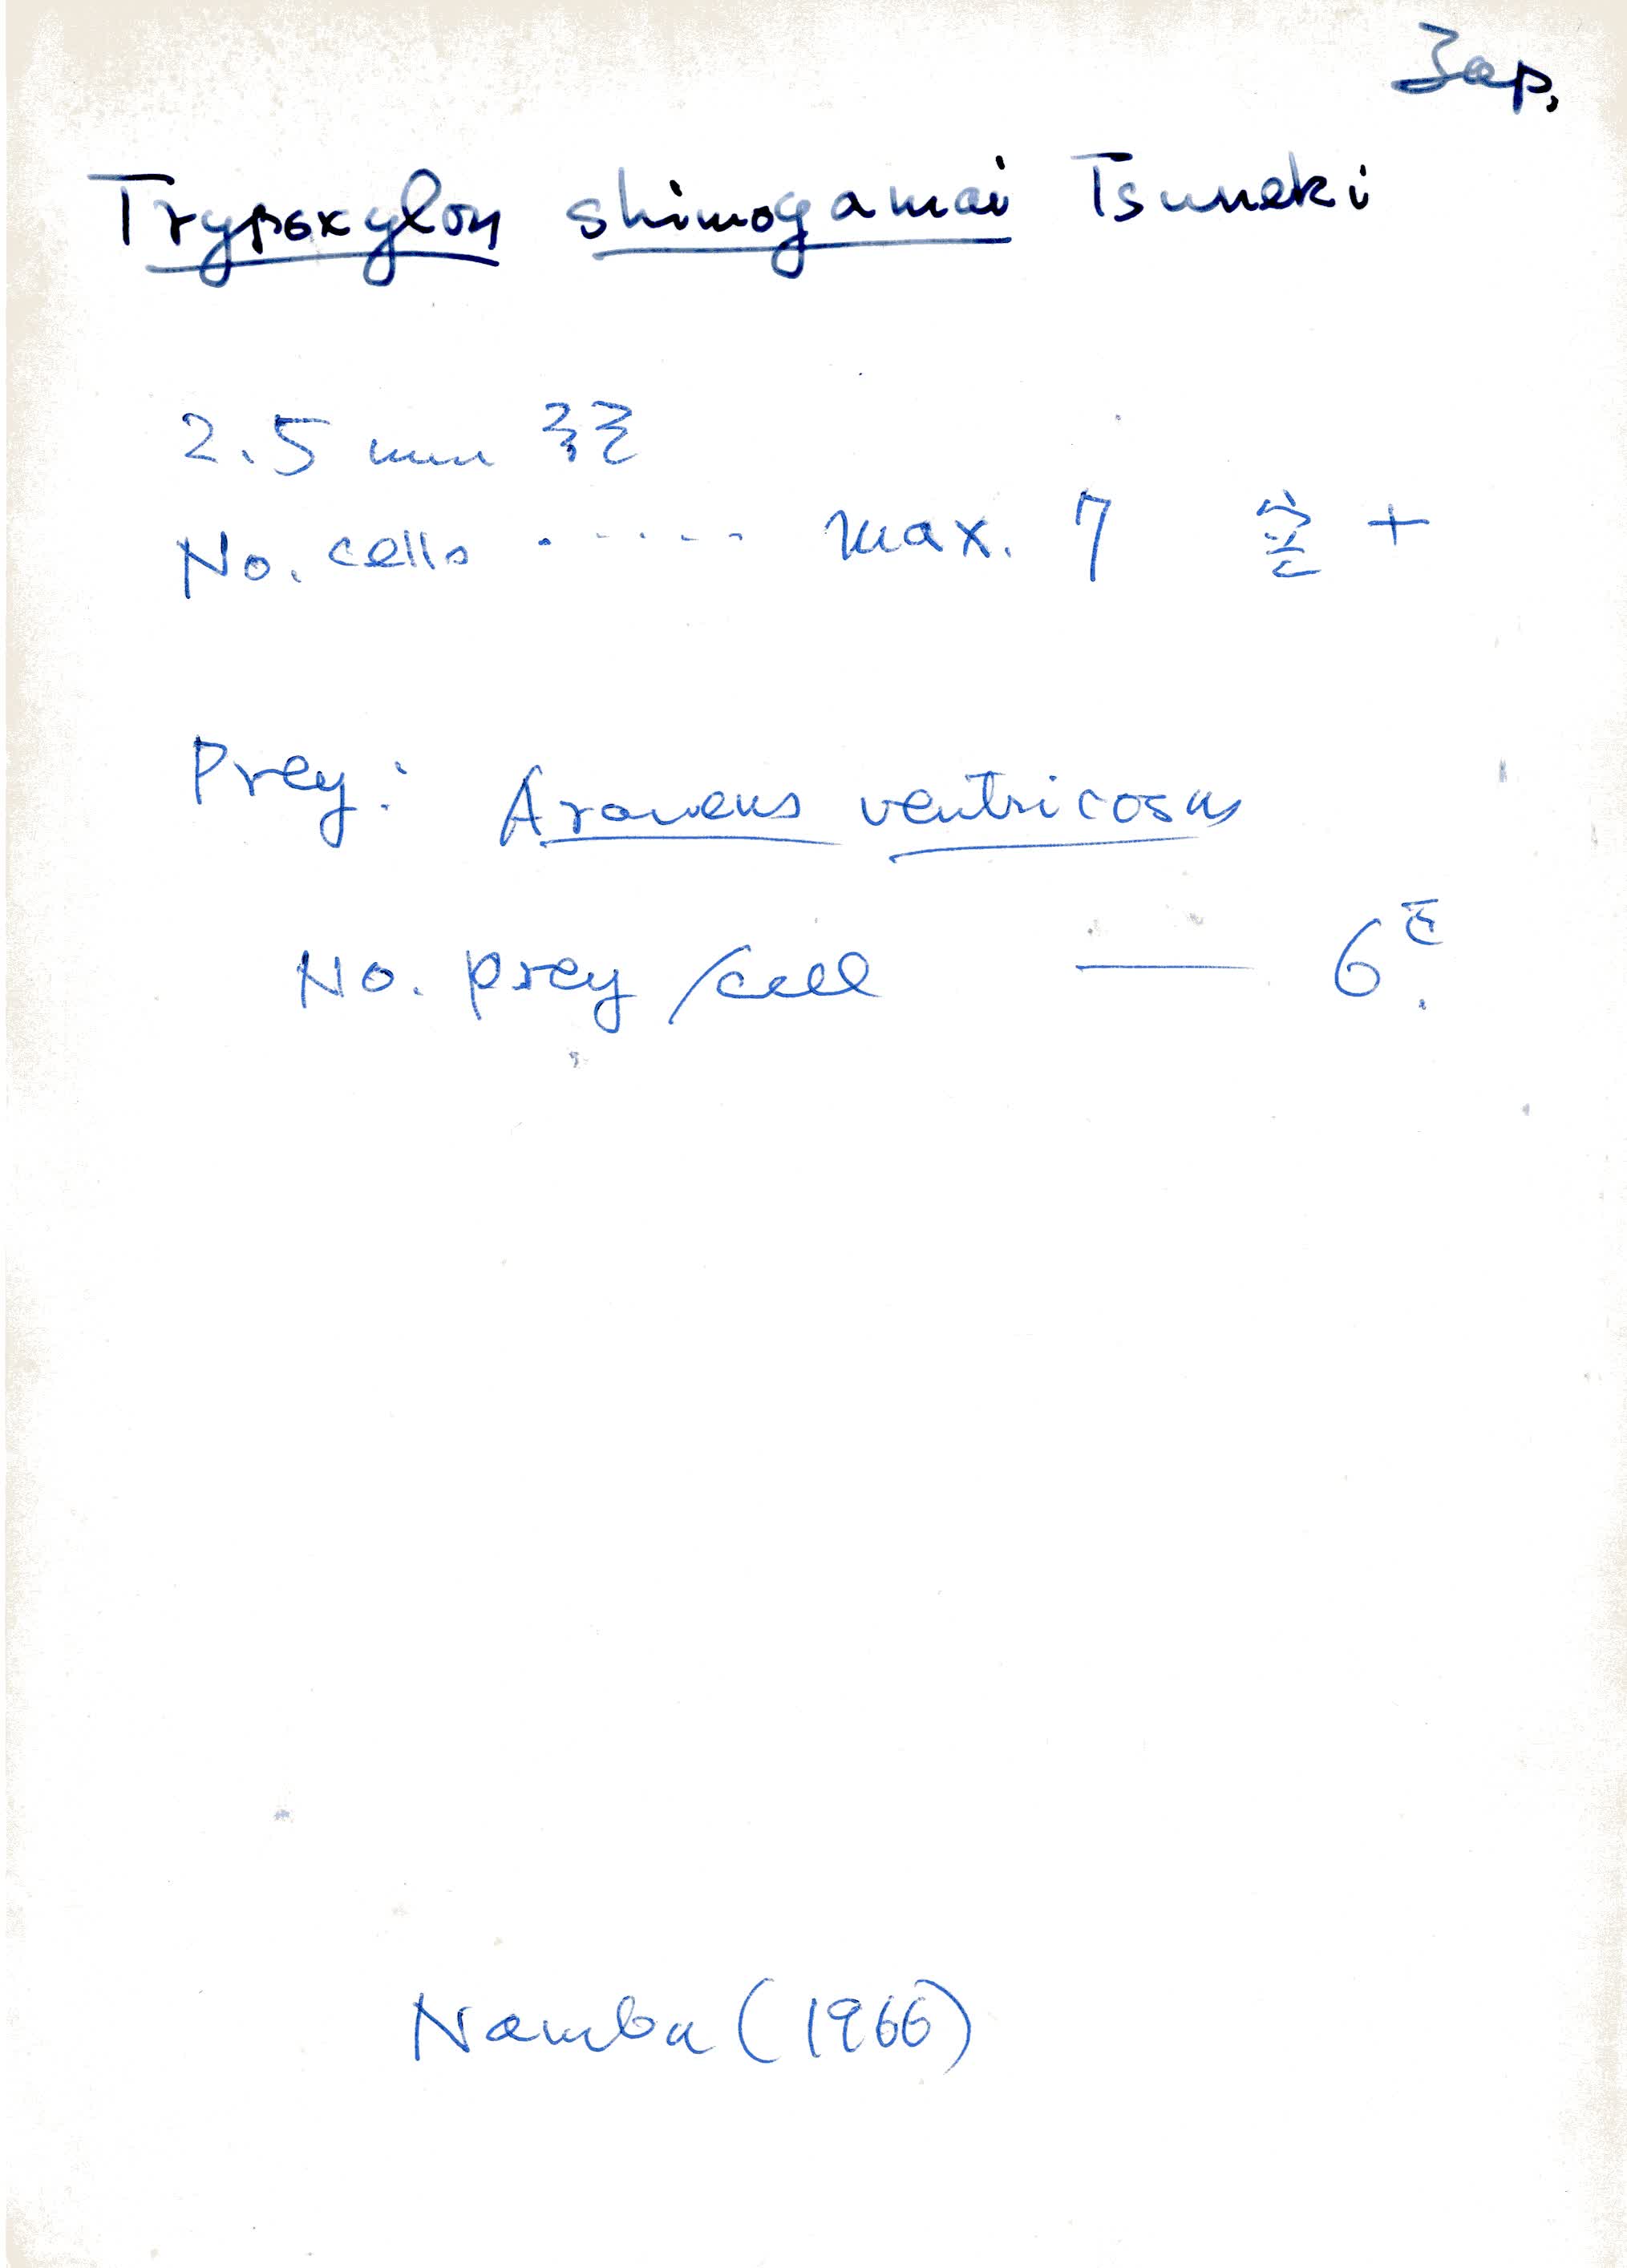 Jap.
Trypoxylon shimogamai Tsuneki
2.5 mm
No. cells ..... max. 7 室 +
Prey: Araneus ventricosus
No. prey/cell — 6
Namba (1966)